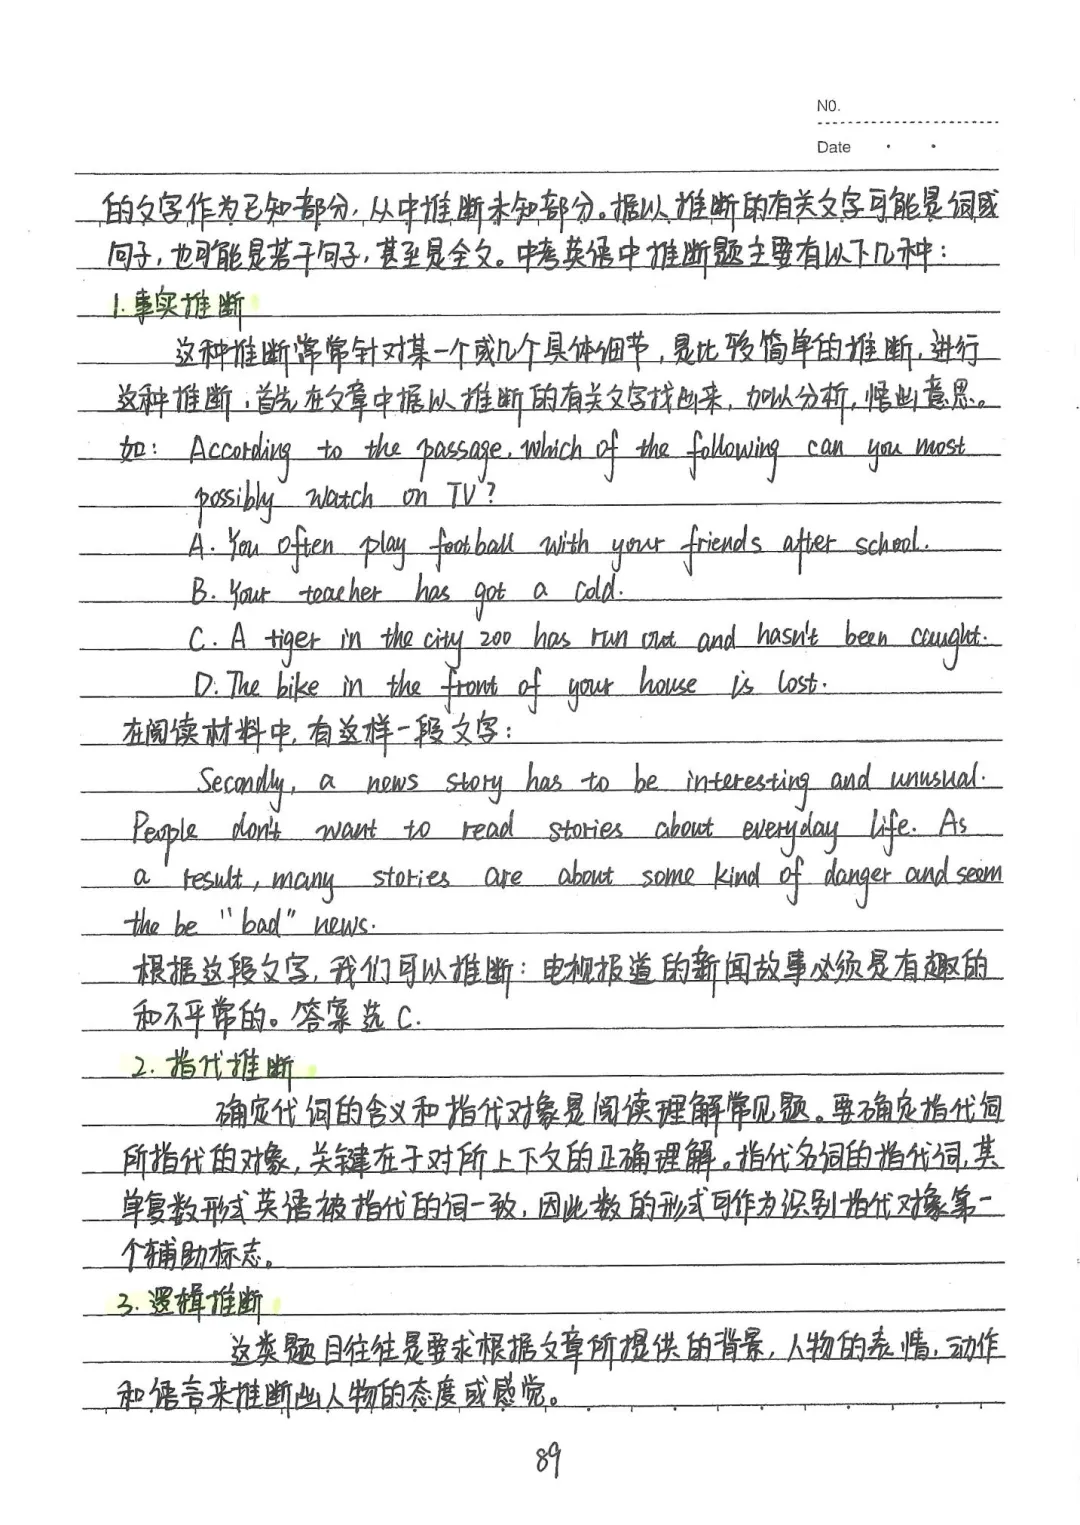 NO.
Date
的文字作为已知部分,从中推断未知部分。据以推断的有关文字可能是词或
句子,也可能是若干句子,甚至是全文。中考英语中推断题主要有以下几种:
1.事实推断
这种推断常常针对某一个或几个具体细节,是比较简单的推断,进行
这种推断,首先在文章中据以推断的有关文字找出来,加以分析,悟出意思。
如: According to the passage, which of the following can you most
possibly watch on TV?
A. You often play football with your friends after school.
B. Your teacher has got a cold.
C. A tiger in the city zoo has run out and hasn't been caught.
D. The bike in the front of your house is lost.
在阅读材料中,有这样一段文字:
Secondly, a news story has to be interesting and unusual.
People don't want to read stories about everyday life. As
a result, many stories are about some kind of danger and seem
the be "bad" news.
根据这段文字,我们可以推断:电视报道的新闻故事必须是有趣的
和不平常的。答案选C.
2.指代推断
确定代词的含义和指代对象是阅读理解常见题。要确定指代词
所指代的对象,关键在于对所上下文的正确理解。指代名词的指代词,其
单复数形式英语被指代的词一致,因此数的形式可作为识别指代对象第一
个辅助标志。
3.逻辑推断
这类题目往往是要求根据文章所提供的背景,人物的表情,动作
和语言来推断出人物的态度或感觉。
89